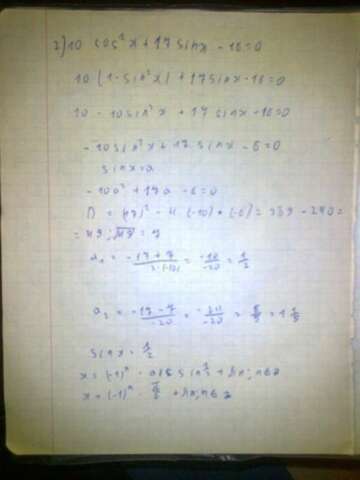 2) 10 cos²x + 17 sinx - 16 = 0
10 (1 - sin²x) + 17 sinx - 16 = 0
10 - 10 sin²x + 17 sinx - 16 = 0
- 10 sin²x + 17 sinx - 6 = 0
sinx = a
- 10a² + 17a - 6 = 0
D = (17)² - 4 · (-10) · (-6) = 289 - 240 =
= 49; √49 = 7
a₁ = (-17 + 7)/(2·(-10)) = -10/-20 = 1/2
a₂ = (-17 - 7)/-20 = -24/-20 = 6/5 = 1 1/5
sinx = 1/2
x = (-1)ⁿ · arcsin 1/2 + πn; n∈z
x = (-1)ⁿ · π/6 + πn; n∈z